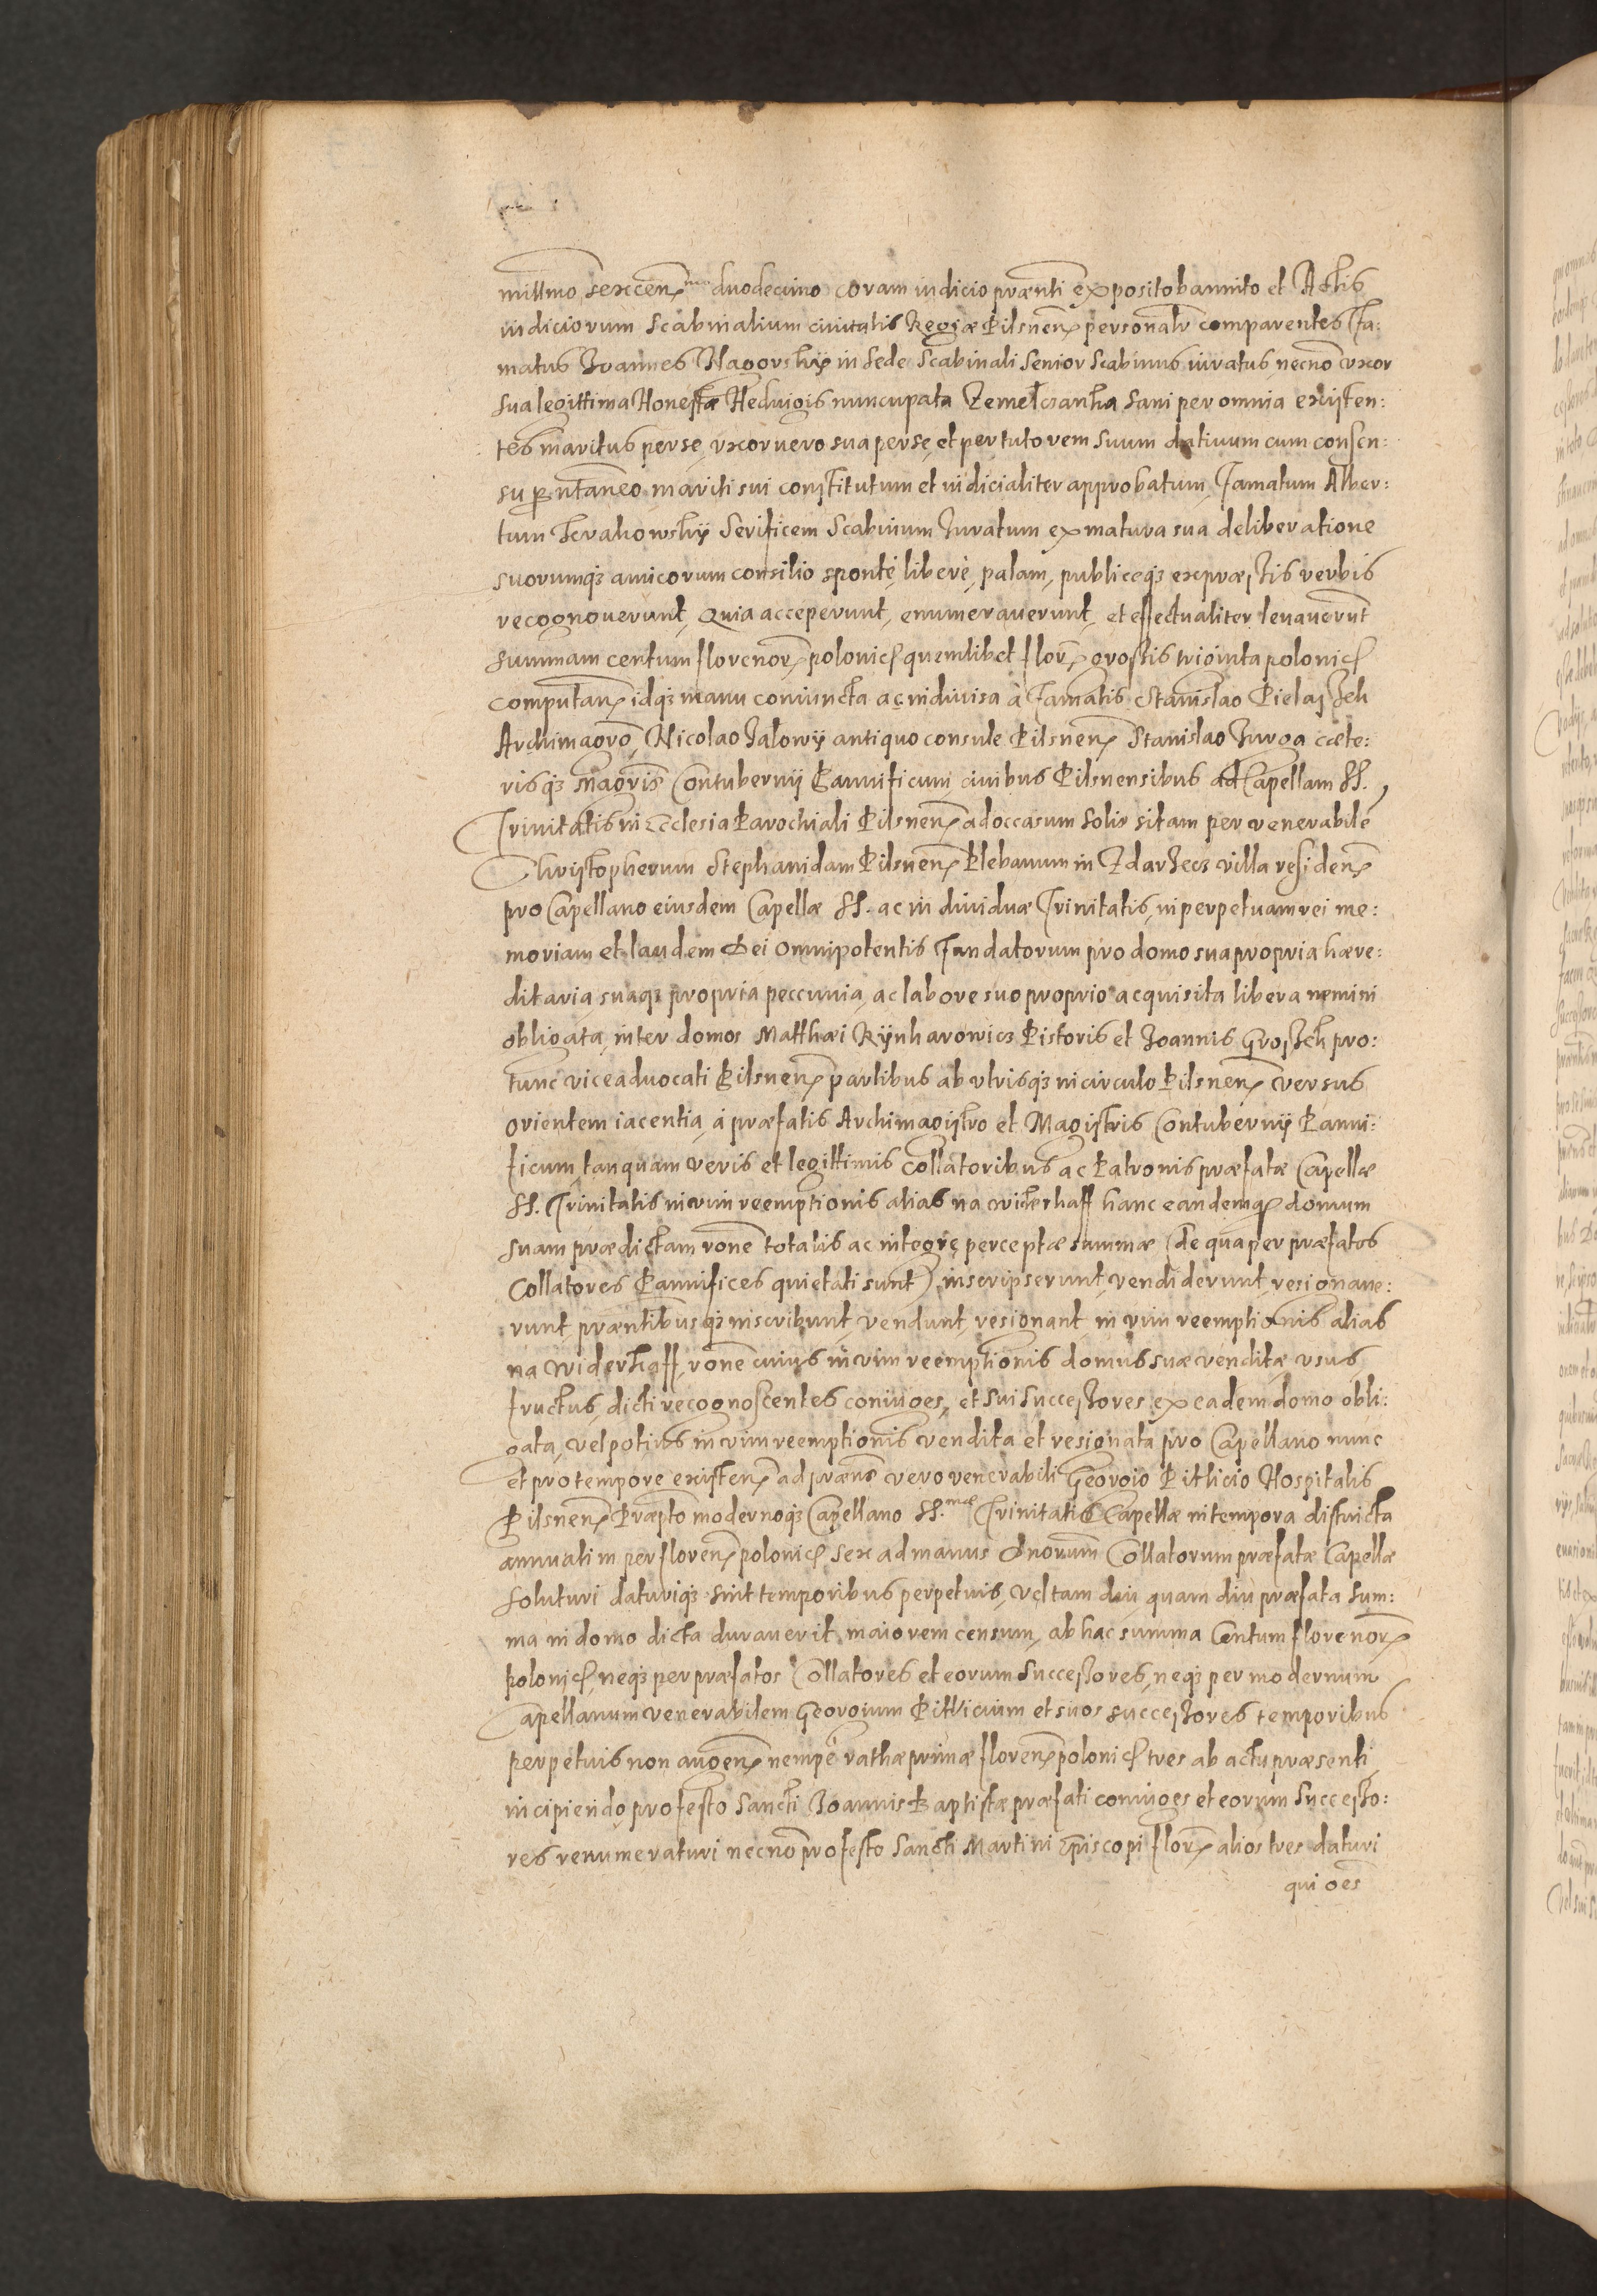 millmo sexcen̄mo duodecimo coram iudicio præñti exposito bannito et Actis
iudiciorum Scabinalium ciuitatis Regiæ Pilsneñ personalr comparentes Fa:
matus Joannes Nagorskÿ in Sede Scabinali Senior Scabinus iuratus necnō vxor
sua legittima Honesta Heduigis nuncupata Zemelczanka sani per omnia existen:
tes maritus per se, vxor uero sua per se, et per tutorem suum datiuum cum consen:
su spontaneo mariti sui constitutum et iudicialiter approbatum, Famatum Alber:
tum Skrakowskÿ Serificem Scabinum Juratum ex matura sua deliberatione
suorumq3 amicorum consilio spontè, liberè, palam, publiceq3 expræssis verbis
recognouerunt, Quia acceperunt, enumerauerunt, et effectualiter leuauerūt
summam centum florenor̄ polonic̄ quemlibet flor̄ grossis triginta polonic̄
computan̄ idq3 manu coniuncta ac indiuisa à Famatis Stanislao Pielassek
Archimagrō, Nicolao Jalowÿ antiquo consule Pilsnen̄ Stanislao Jurga cæte:
risq3 magris Contubernÿ Pannificum ciuibus Pilsnensibus ad Capellam SS.
Trinitatis in Ecclesia Parochiali Pilsnen̄ ad occasum Solis sitam per venerabilē
Christopherum Stephanidam Pilsnen̄ Plebanum in Zdarzecz villa residen̄
pro Capellano eiusdem Capellæ SS. ac indiuiduæ Trinitatis, in perpetuam rei me:
moriam et laudem Dei omnipotentis Fundatorum pro domo sua propria hære:
ditaria, suaq3 propria peccunia, ac labore suo proprio acquisita libera nemini
obligata, inter domos Matthæi Rÿnharowicz Pistoris et Joannis Grossek pro:
tunc viceaduocati Pilsnen̄ partibus ab vtrisq3 in circulo Pilsnen̄ versus
orientem iacentia, à præfatis Archimagistro et Magistris Contubernÿ Panni:
ficum, tanquam veris et legittimis Collatoribus ac Patronis præfatæ Capellæ
SS. Trinitatis in vim reemptionis alias na widerkaff hanc eandemq3 domum
suam prædictam rone totalis ac integre perceptæ summæ (de qua per præfatos
Collatores Pannifices quietati sunt) inscripserunt, vendiderunt, resignaue:
runt, præntibusq3 inscribunt, vendunt, resignant, in vim reemptionis alias
na widerkaff, rone cuius in vim reemptionis domus suæ venditæ vsus
fructus, dicti recognoscentes coniuges, et sui successores, ex eadem domo obli:
gata, vel potius in vim reemptionis vendita et resignata pro Capellano nunc
et pro tempore existen̄ ad præns vero venerabili Georgio Pitlicio Hospitalis
Pilsnen̄ Præpto modernoq3 Capellano SS.mæ Trinitatis Capellæ in tempora districta
annuatim per floren̄ polonic̄ sex ad manus Dnorum Collatorum præfatæ Capellæ
soluturi daturiq3 sint temporibus perpetuis, vel tam diu, quam diu præfata sum:
ma in domo dicta durauerit, maiorem censum, ab hac summa Centum florenor̄
polonic̄, neq3 per præfatos Collatores et eorum Successores, neq3 per modernum
Capellanum venerabilem Georgium Pitlicium et suos successores temporibus
perpetuis non augen̄ nempè rathæ primæ floren̄ polonic̄ tres ab actu præsenti
incipiendo, pro festo Sancti Joannis Baptistæ præfati coniuges et eorum Successo:
res renumeraturi necnō pro festo Sancti Martini Episcopi flor̄ alios tres daturi
qui oēs